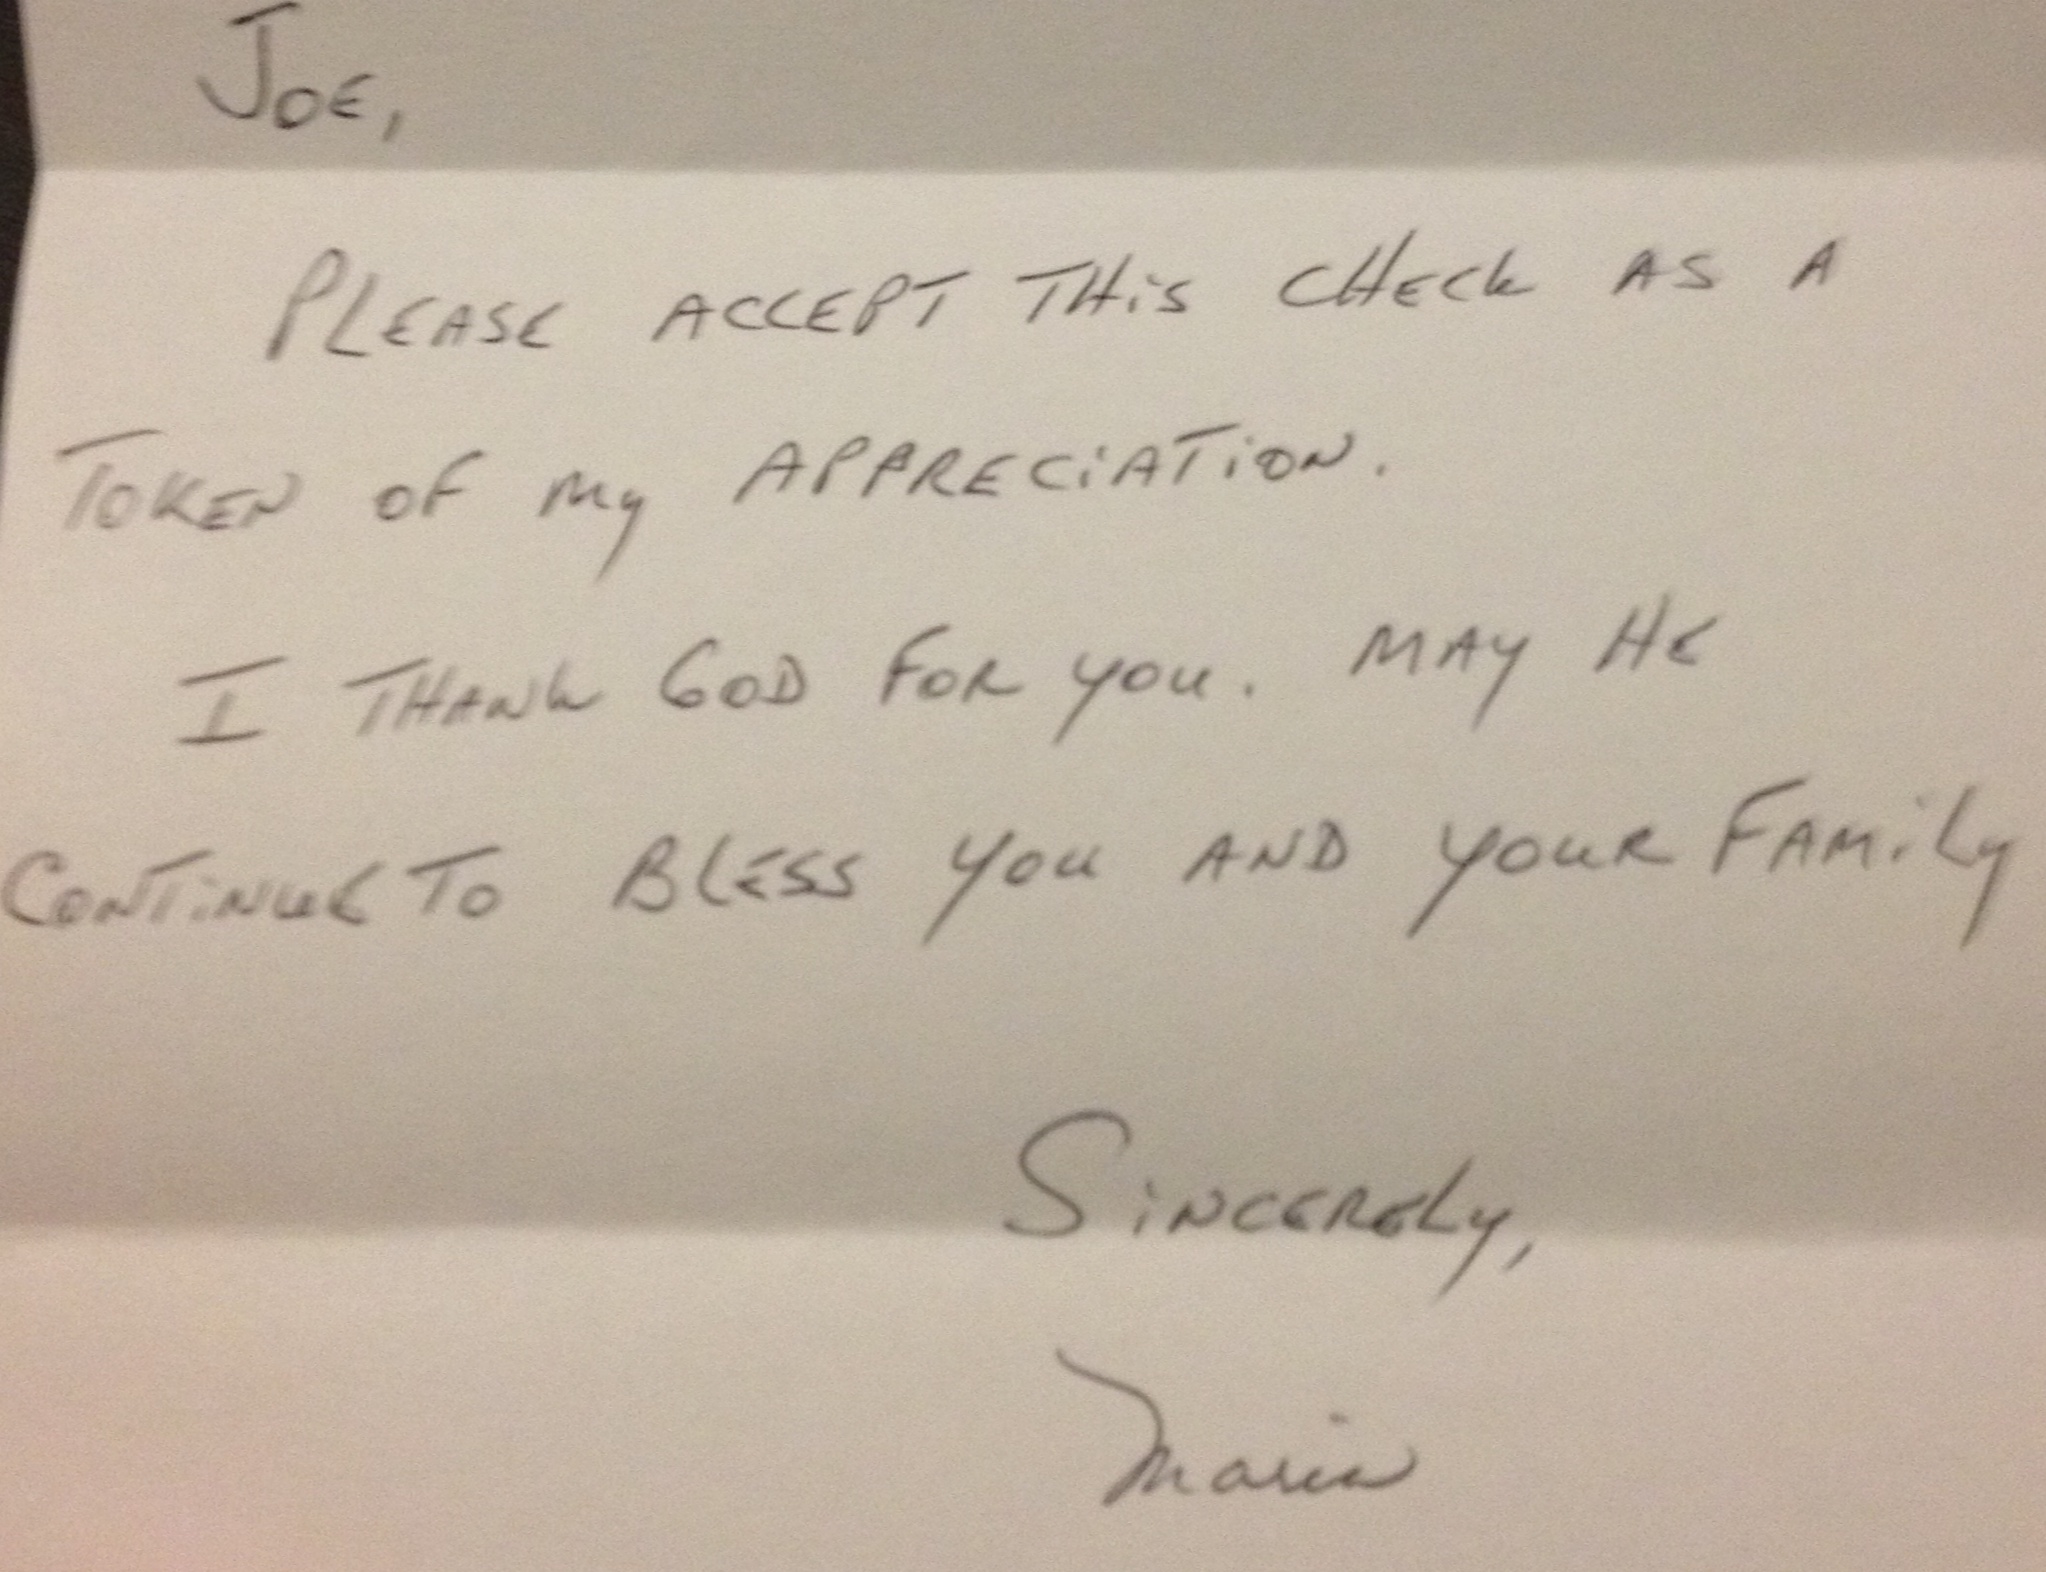 JOE,
PLEASE ACCEPT THiS CHECK AS A
TOKEN OF My APPRECiATiON.
I THANK GOD FOR you. MAY HE
CONTiNUE TO BLESS you AND youR FAMiLy
SiNCERELy,
Maria